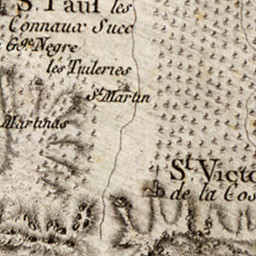 S. Paul les
Connaux Succ
Gd. Negre
les Tuileries
St. Martin
Martinas
St. Victo
de la Cos